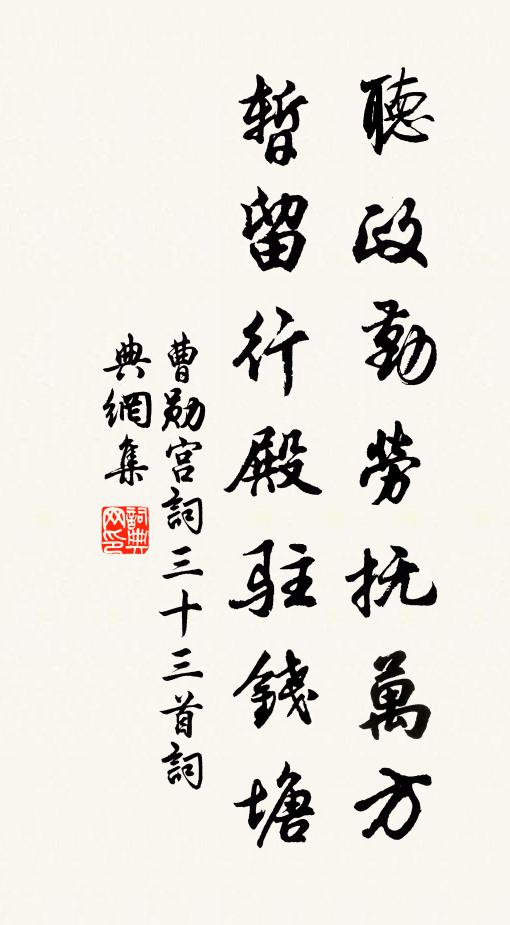 聽政勤勞抚萬方
暫留行殿駐錢塘
曹勛宮詞三十三首詞
典網集
詞典网印